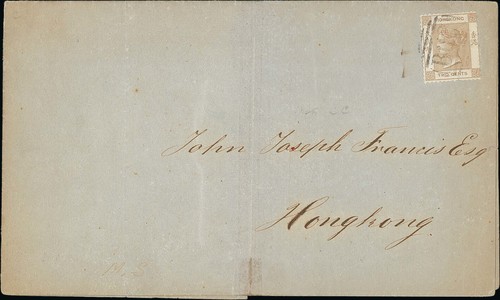 HONG KONG
B62
TWO CENTS
John Joseph Francis Esq
Hongkong